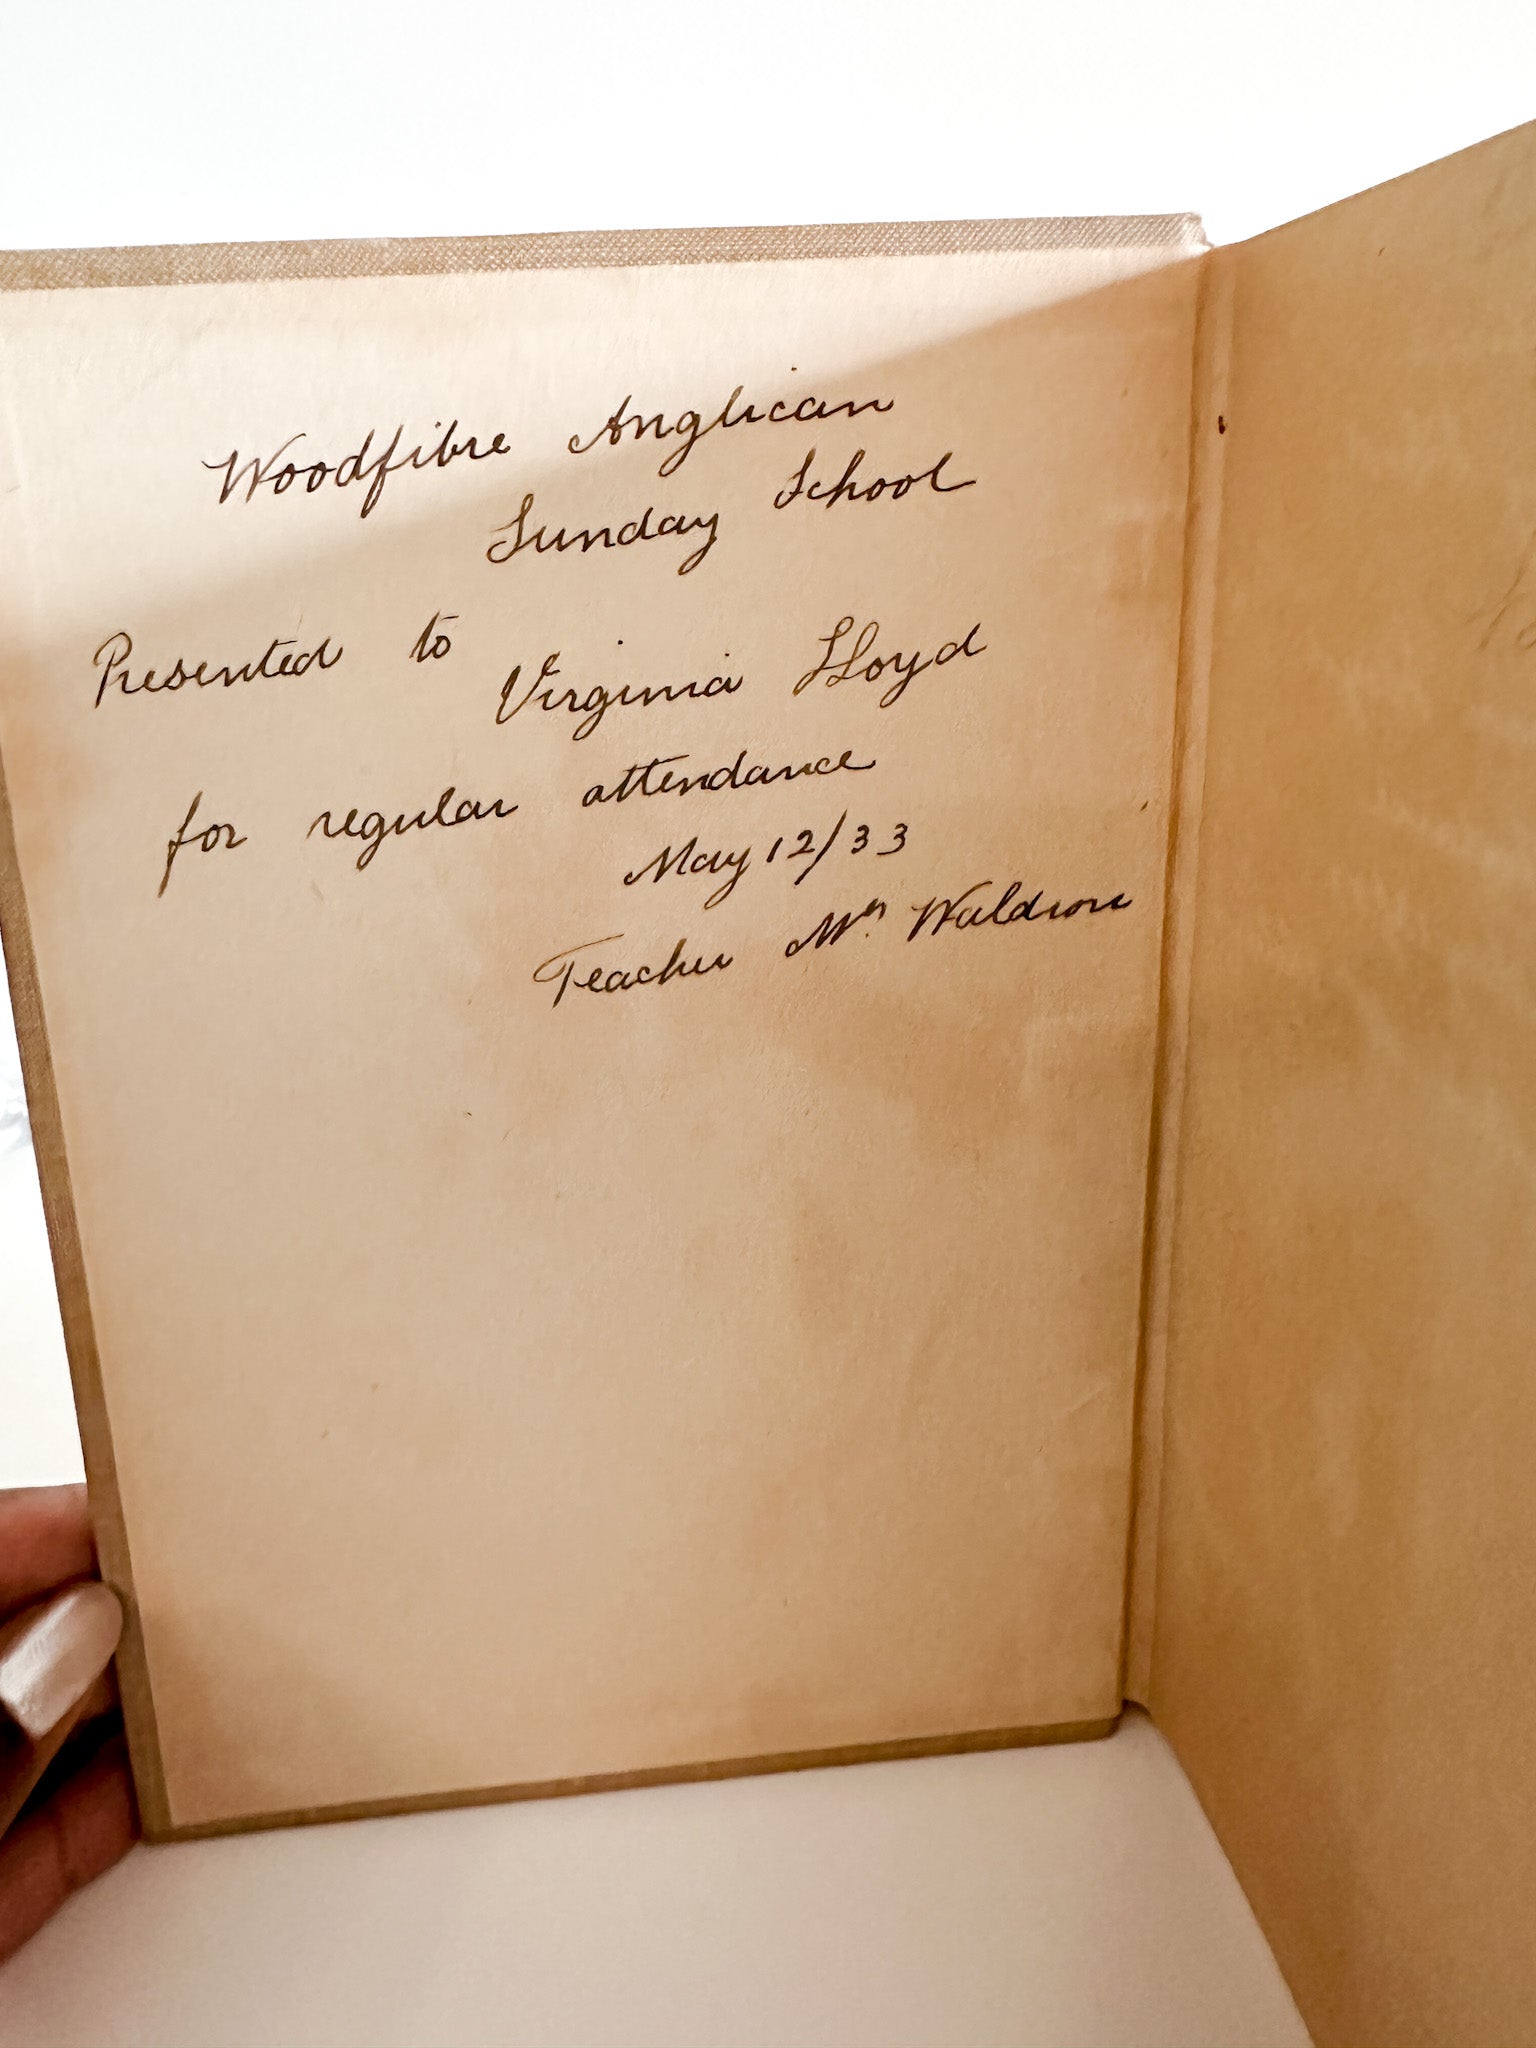 Woodfibre Anglican
Sunday School
Presented to
Virginia Lloyd
for regular attendance
May 12/33
Teacher Mrs Waldron